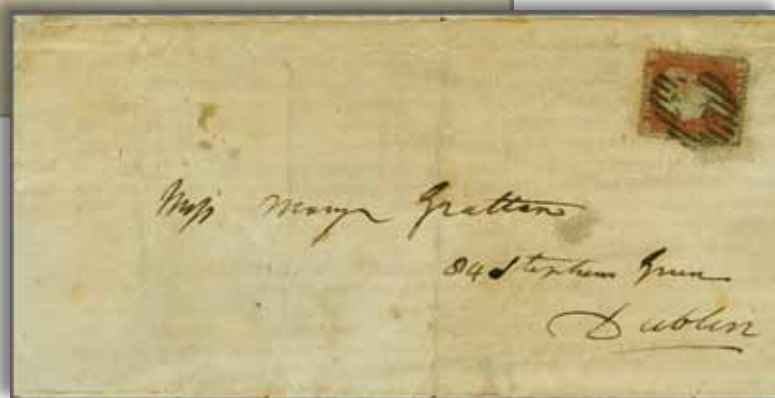 Miss Mary Grattan
84 Stephens Green
Dublin